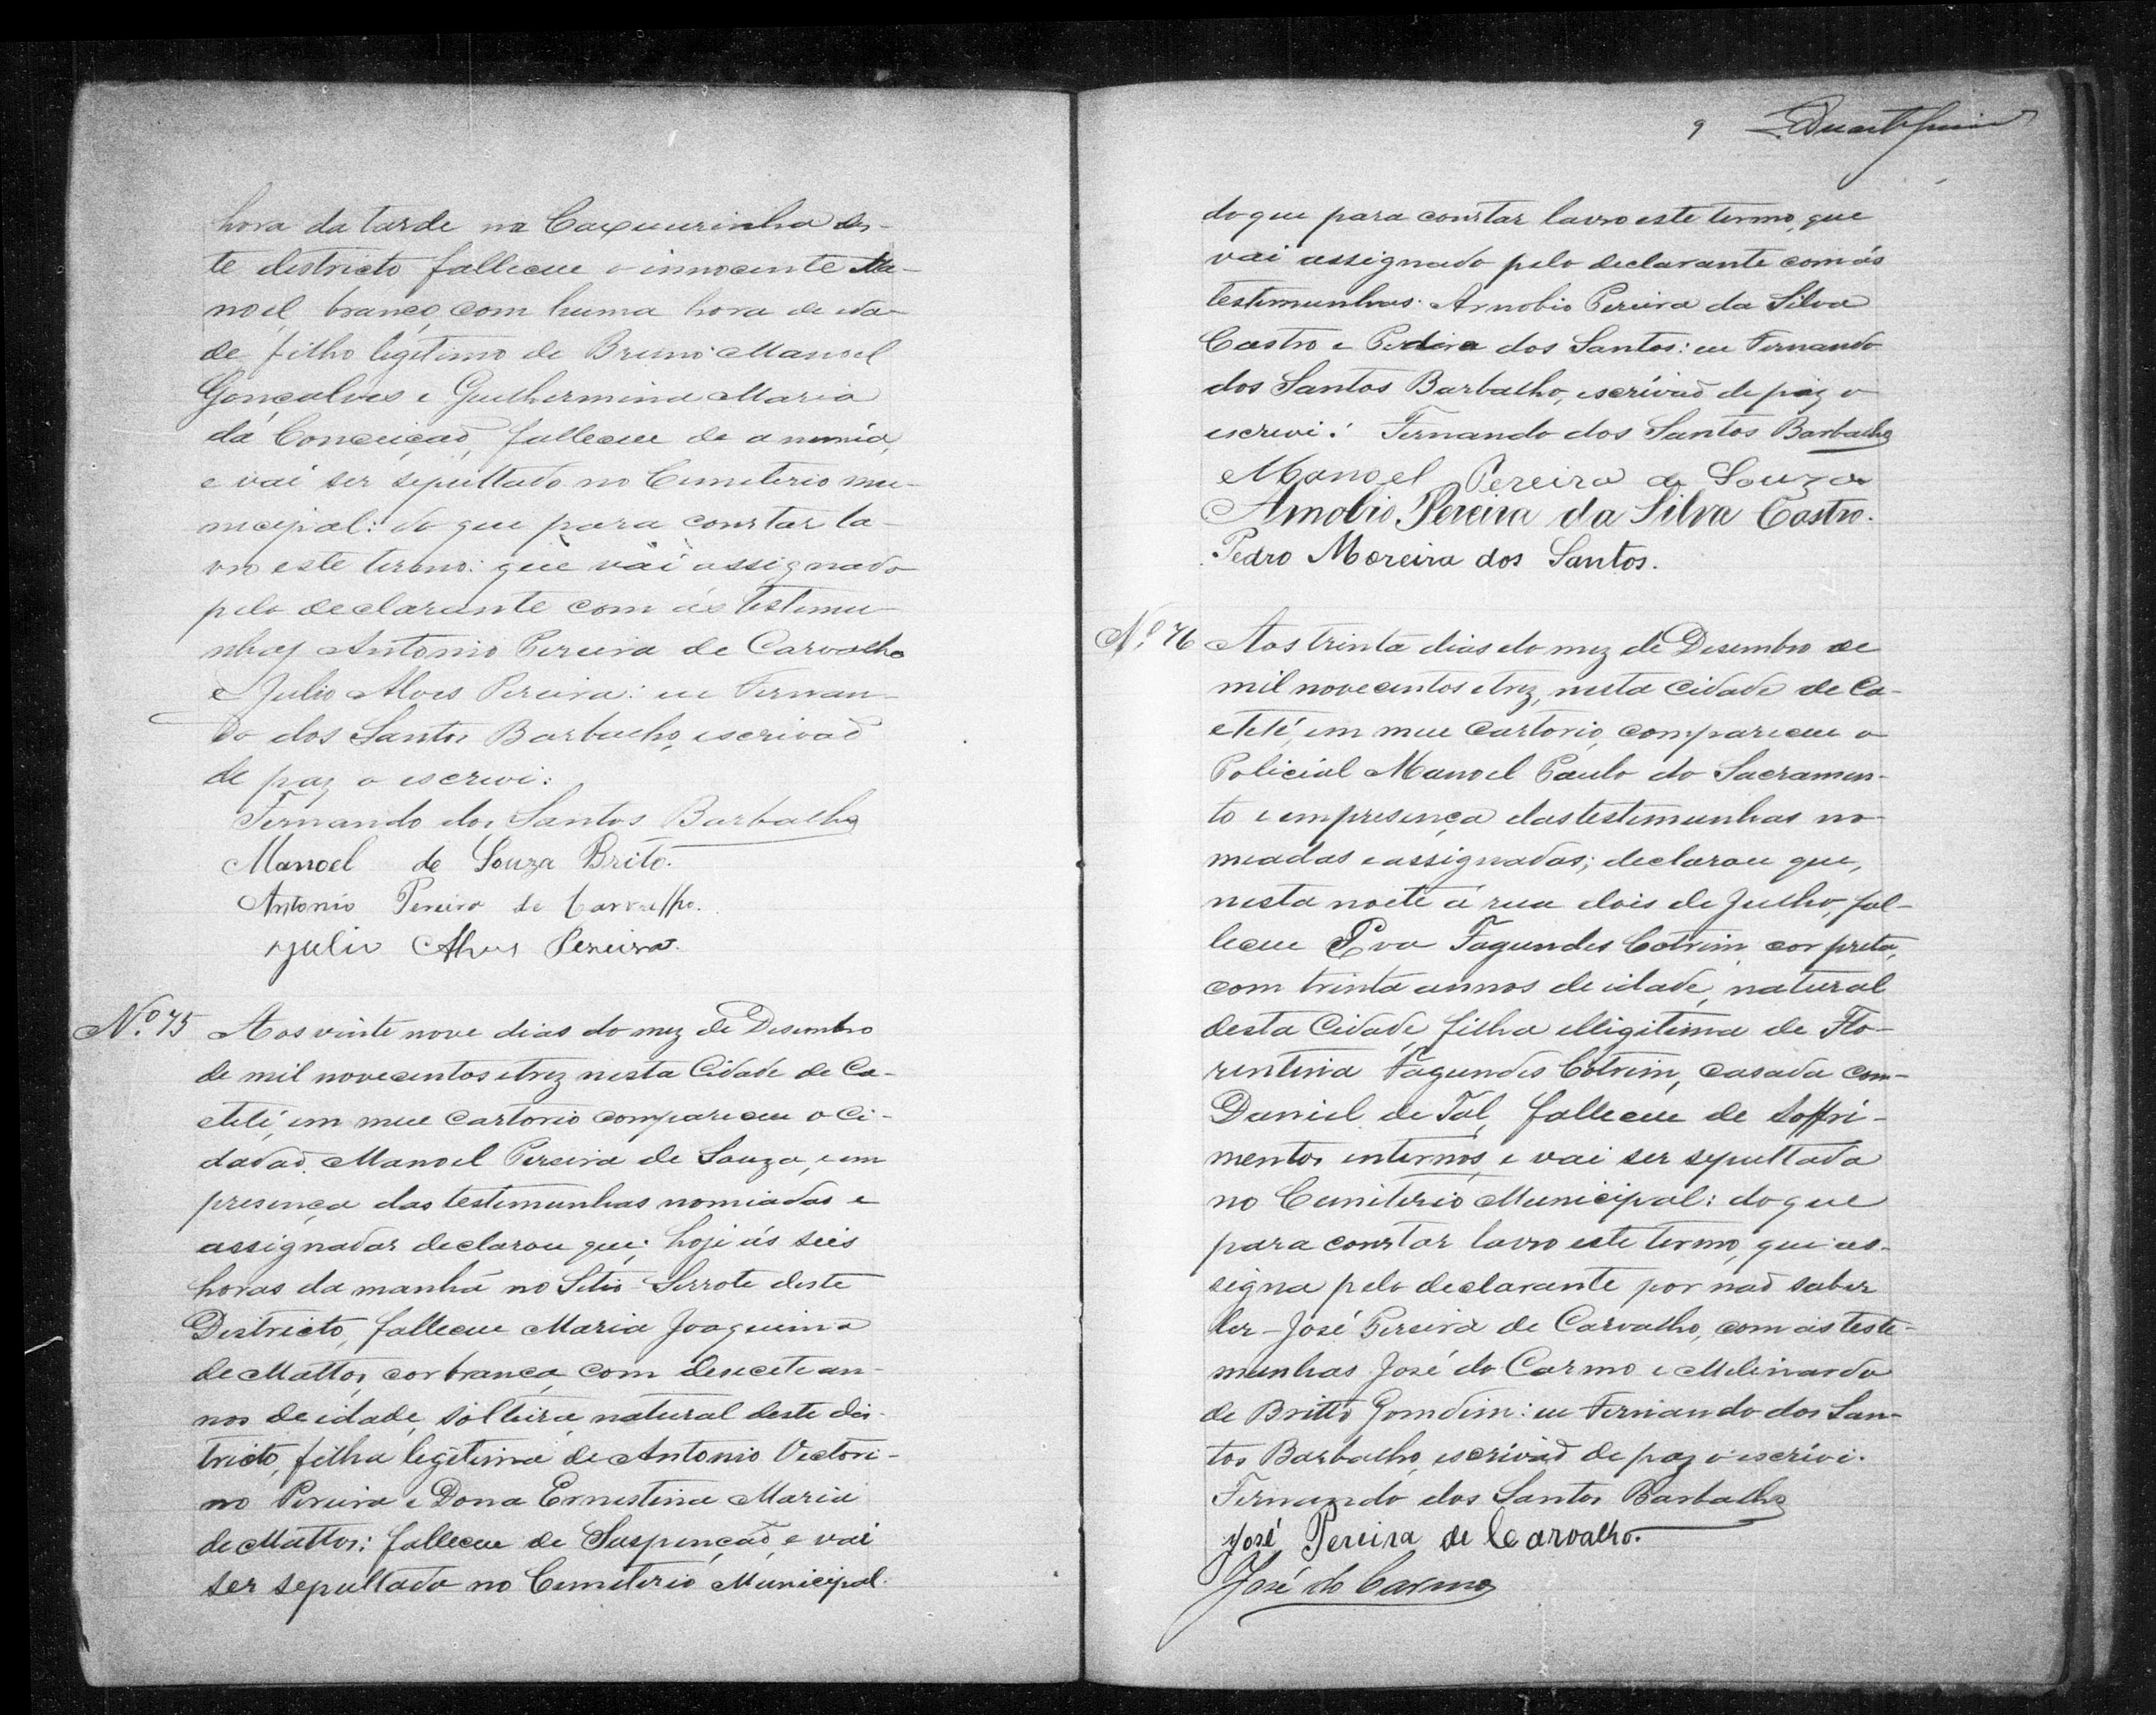 hora da tarde na Caxueirinha des-
te districto falleceu o innocente Ma-
noel, branco, com huma hora de ida-
de filho legitimo de Bruno Manoel
Gonçalves e Guilhermina Maria
da Conceição, falleceu de anemia,
e vai ser sepultado no Cemiterio mu-
nicipal: do que para constar la-
vro este termo: que vai assignado
pelo declarante com ás testemu-
nhas Antonio Pereira de Carvalho
e Julio Alves Pereira: eu Fernan-
do dos Santos Barbalho, escrivaõ
de paz o escrevi:
Fernando dos Santos Barbalho
Manoel de Souza Brito.
Antonio Pereira de Carvalho.
Julio Alves Pereira.
Nº. 75 Aos vinte nove dias do mez de Desembro
de mil novecentos e trez nesta Cidade de Ca-
etité, em meu cartorio compareceu o Ci-
dadaõ Manoel Pereira de Souza, e em
presença das testemunhas nomiadas e
assignadas declarou que; hoje ás seis
horas da manhã no Sitio Serrote deste
Districto, falleceu Maria Joaquina
de Mattos, cor branca, com desecete an-
nos de idade, solteira, natural deste dis-
tricto, filha legitima de Antonio Victori-
no Pereira e Dona Ernestina Maria
de Mattos: falleceu de Suspençaõ, e vai
ser sepultada no Cemiterio Municipal.
9
do que para constar lavro este termo, que
vai assignado pelo declarante com ás
testemunhas: Arnobio Pereira da Silva
Castro e dos Santos: eu Fernando
dos Santos Barbalho, escrivaõ de paz o
escrevi: Fernando dos Santos Barbalho
Manoel Pereira de Souza
Arnobio Pereira da Silva Castro.
Pedro Moreira dos Santos.
Nº. 76 Aos trinta dias do mez de Desembro de
mil novecentos e trez, nesta Cidade de Ca-
etité, em meu Cartorio, compareceu o
Policial Manoel Paulo do Sacramen-
to e em presença das testemunhas no-
meadas e assignadas; declarou que,
nesta noite á rua dois de Julho, fal-
leceu Eva Fagundes Cotrim, cor preta,
com trinta annos de idade, natural
desta Cidade, filha illigitima de Flo-
rentina Fagundes Cotrim, casada com
Daniel de Tal, falleceu de soffri-
mentos internos, e vai ser sepultada
no Cemiterio Municipal: do que
para constar lavro este termo, que as-
signa pelo declarante por naõ saber
ler - José Pereira de Carvalho, com as teste-
munhas José do Carmo e
de Britto Gomdim: eu Fernando dos San-
tos Barbalho, escrivaõ de paz o escrivi.
Fernando dos Santos Barbalho
José Pereira de Carvalho.
José do Carmo